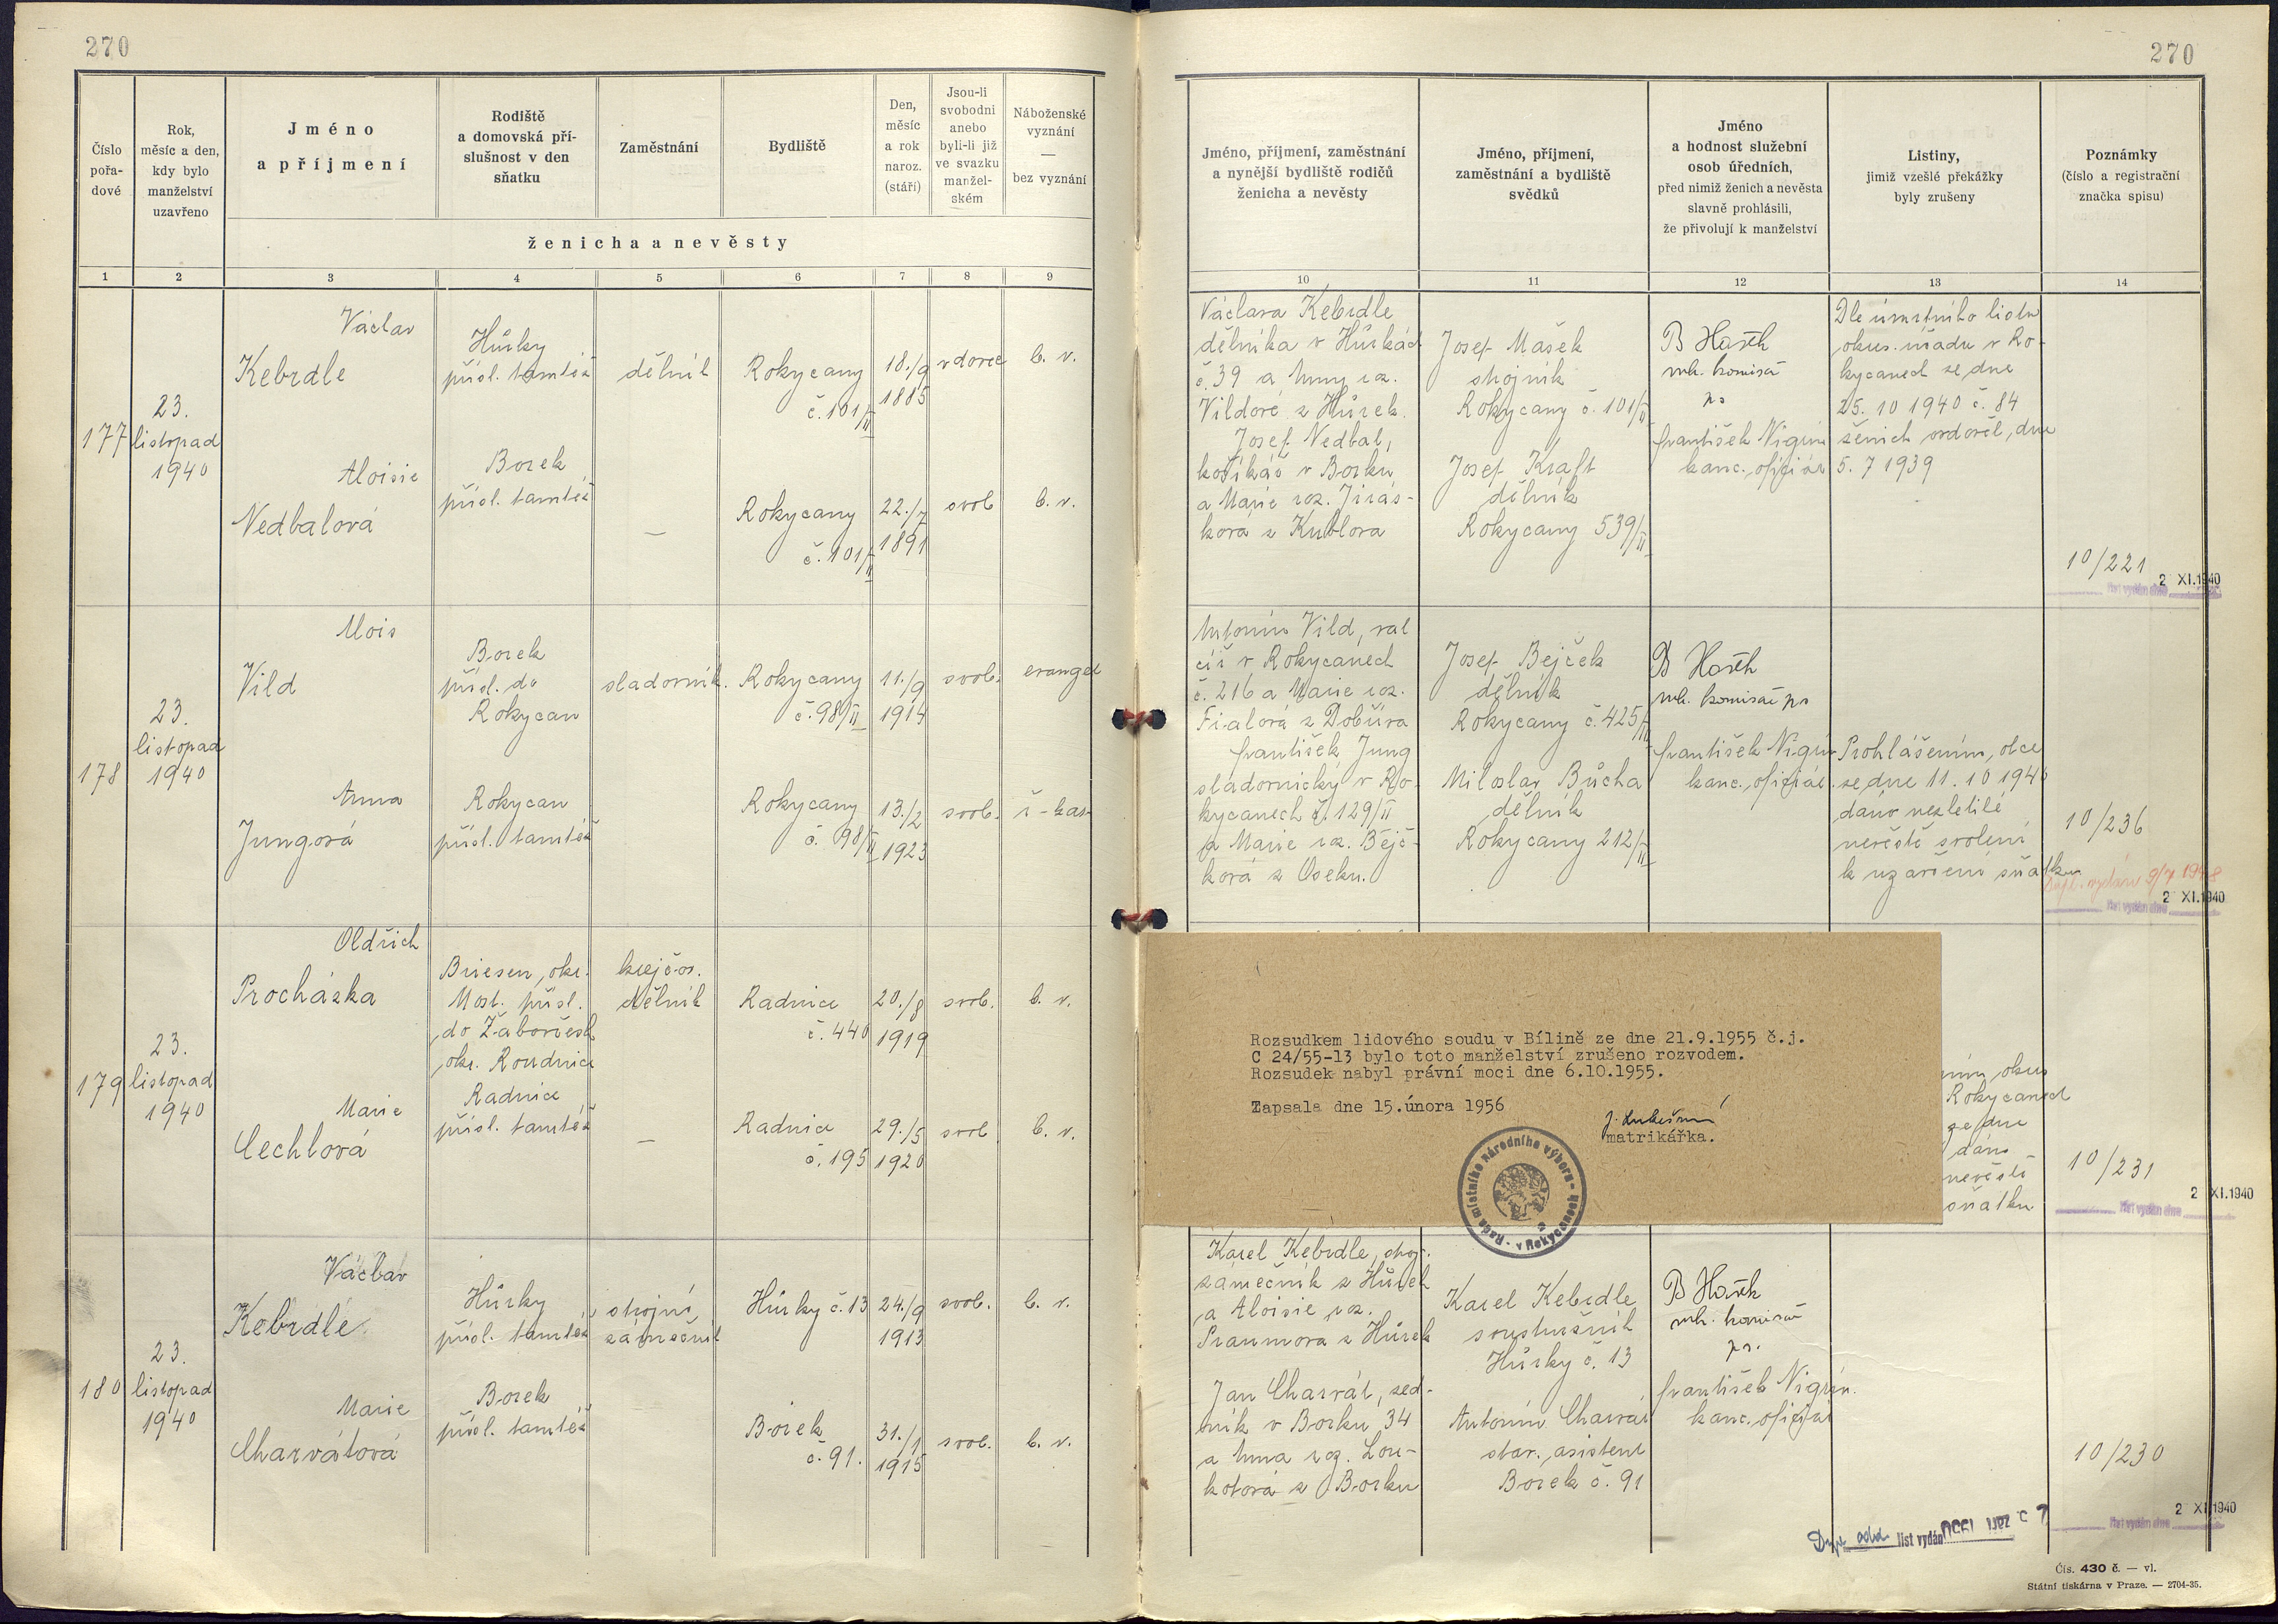 270
270
Číslo pořa-dové
Rok, měsíc a den, kdy bylo manželství uzavřeno
Jméno a příjmení
Rodiště a domovská pří-slušnost v den sňatku
Zaměstnání
Bydliště
Den, měsíc a rok naroz. (stáří)
Jsou-li svobodni anebo byli-li již ve svazku manžel-ském
Náboženské vyznání — bez vyznání
ženicha a nevěsty
1 2 3 4 5 6 7 8 9
Jméno, příjmení, zaměstnání a nynější bydliště rodičů ženicha a nevěsty
Jméno, příjmení, zaměstnání a bydliště svědků
Jméno a hodnost služební osob úředních, před nimiž ženich a nevěsta slavně prohlásili, že přivolují k manželství
Listiny, jimiž vzešlé překážky byly zrušeny
Poznámky (číslo a registrační značka spisu)
10 11 12 13 14
177
23.
listopad
1940
Václav
Kebrdle
Hůrky
přísl. tamtéž
dělník
Rokycany
č. 101/II
18./9
1885
vdovec
b. v.
Aloisie
Nedbalová
Borek
přísl. tamtéž
—
Rokycany
č. 101/II
22./7
1891
svob
b. v.
Václava Kebrdle
dělníka v Hůrkách
č. 39 a Anny roz.
Vildové z Hůrek.
Josef Nedbal,
košíkář v Borku
a Marie roz. Jirás-
ková z Kublova
Josef Mašek
strojník
Rokycany č. 101/II
Josef Kraft
dělník
Rokycany 539/II
vrch. komisař
František Nigrin
kanc. oficiál
Dle úmrtního listu
okres. úřadu v Ro-
kycanech ze dne
25. 10 1940 č. 84
ženich ovdověl, dne
5. 7 1939
10/221
2 XI.1940
list vydán dne
178
23.
listopad
1940
Alois
Vild
Borek
přísl. do
Rokycan
sladovník.
Rokycany
č. 98/II
11./9
1914
svob.
evangel
Anna
Jungová
Rokycan
přísl. tamtéž
Rokycany
č. 98/II
13./2
1923
svob.
ř-kat
Antonín Vild, val
cíř v Rokycanech
č. 216 a Marie roz.
Fialová z Dobříva
František Jung
sladovnický v Ro-
kycanech č. 129/II
a Marie roz. Bejč-
ková z Oseku.
Josef Bejček
dělník
Rokycany č. 425/II
Miloslav Bůcha
dělník
Rokycany 212/II
vrch. komisař
František Nigrin
kanc. oficiál
Prohlášením, otce
ze dne 11. 10 1940
dáno nezletilé
nevěstě svolení
k uzavření sňatku
10/236
vydán 9/7 1948
2 XI.1940
list vydán dne
179
23.
listopad
1940
Oldřich
Procházka
Briesen, okr.
Most. přísl.
do Žabovřesk
okr. Roudnice
krejčov.
dělník
Radnice
č. 440
20./8
1919
svob.
b. v.
Marie
Cechlová
Radnice
přísl. tamtéž
—
Radnice
č. 195
29./5
1920
svob
b. v.
Rozsudkem lidového soudu v Bílině ze dne 21.9.1955 č.j.
C 24/55-13 bylo toto manželství zrušeno rozvodem.
Rozsudek nabyl právní moci dne 6.10.1955.
Zapsala dne 15.února 1956
matrikářka.
Rada místního národního výboru v Rokycanech
okres
Rokycanech
ze dne
dáno
nevěstě
sňatku
10/231
2 XI.1940
list vydán dne
180
23.
listopad
1940
Václav
Kebrdle
Hůrky
přísl. tamtéž
strojní
zámečník
Hůrky č. 13
24./9
1913
svob.
b. v.
Marie
Charvátová
Borek
přísl. tamtéž
Borek
č. 91.
31./1
1915
svob.
b. v.
Karel Kebrdle, stroj.
zámečník z Hůrek
a Aloisie roz.
Praumova z Hůrek
Jan Charvát, zed-
ník v Borku 34
a Anna roz. Lou-
kotová z Borku
Karel Kebrdle
soustružník
Hůrky č. 13
Antonín Charvát
stav. asistent
Borek č. 91
vrch. komisař
František Nigrin.
kanc. oficiál
10/230
2 XI.1940
list vydán dne
list vydán
Čís. 430 č. — vl.
Státní tiskárna v Praze. — 2704-35.